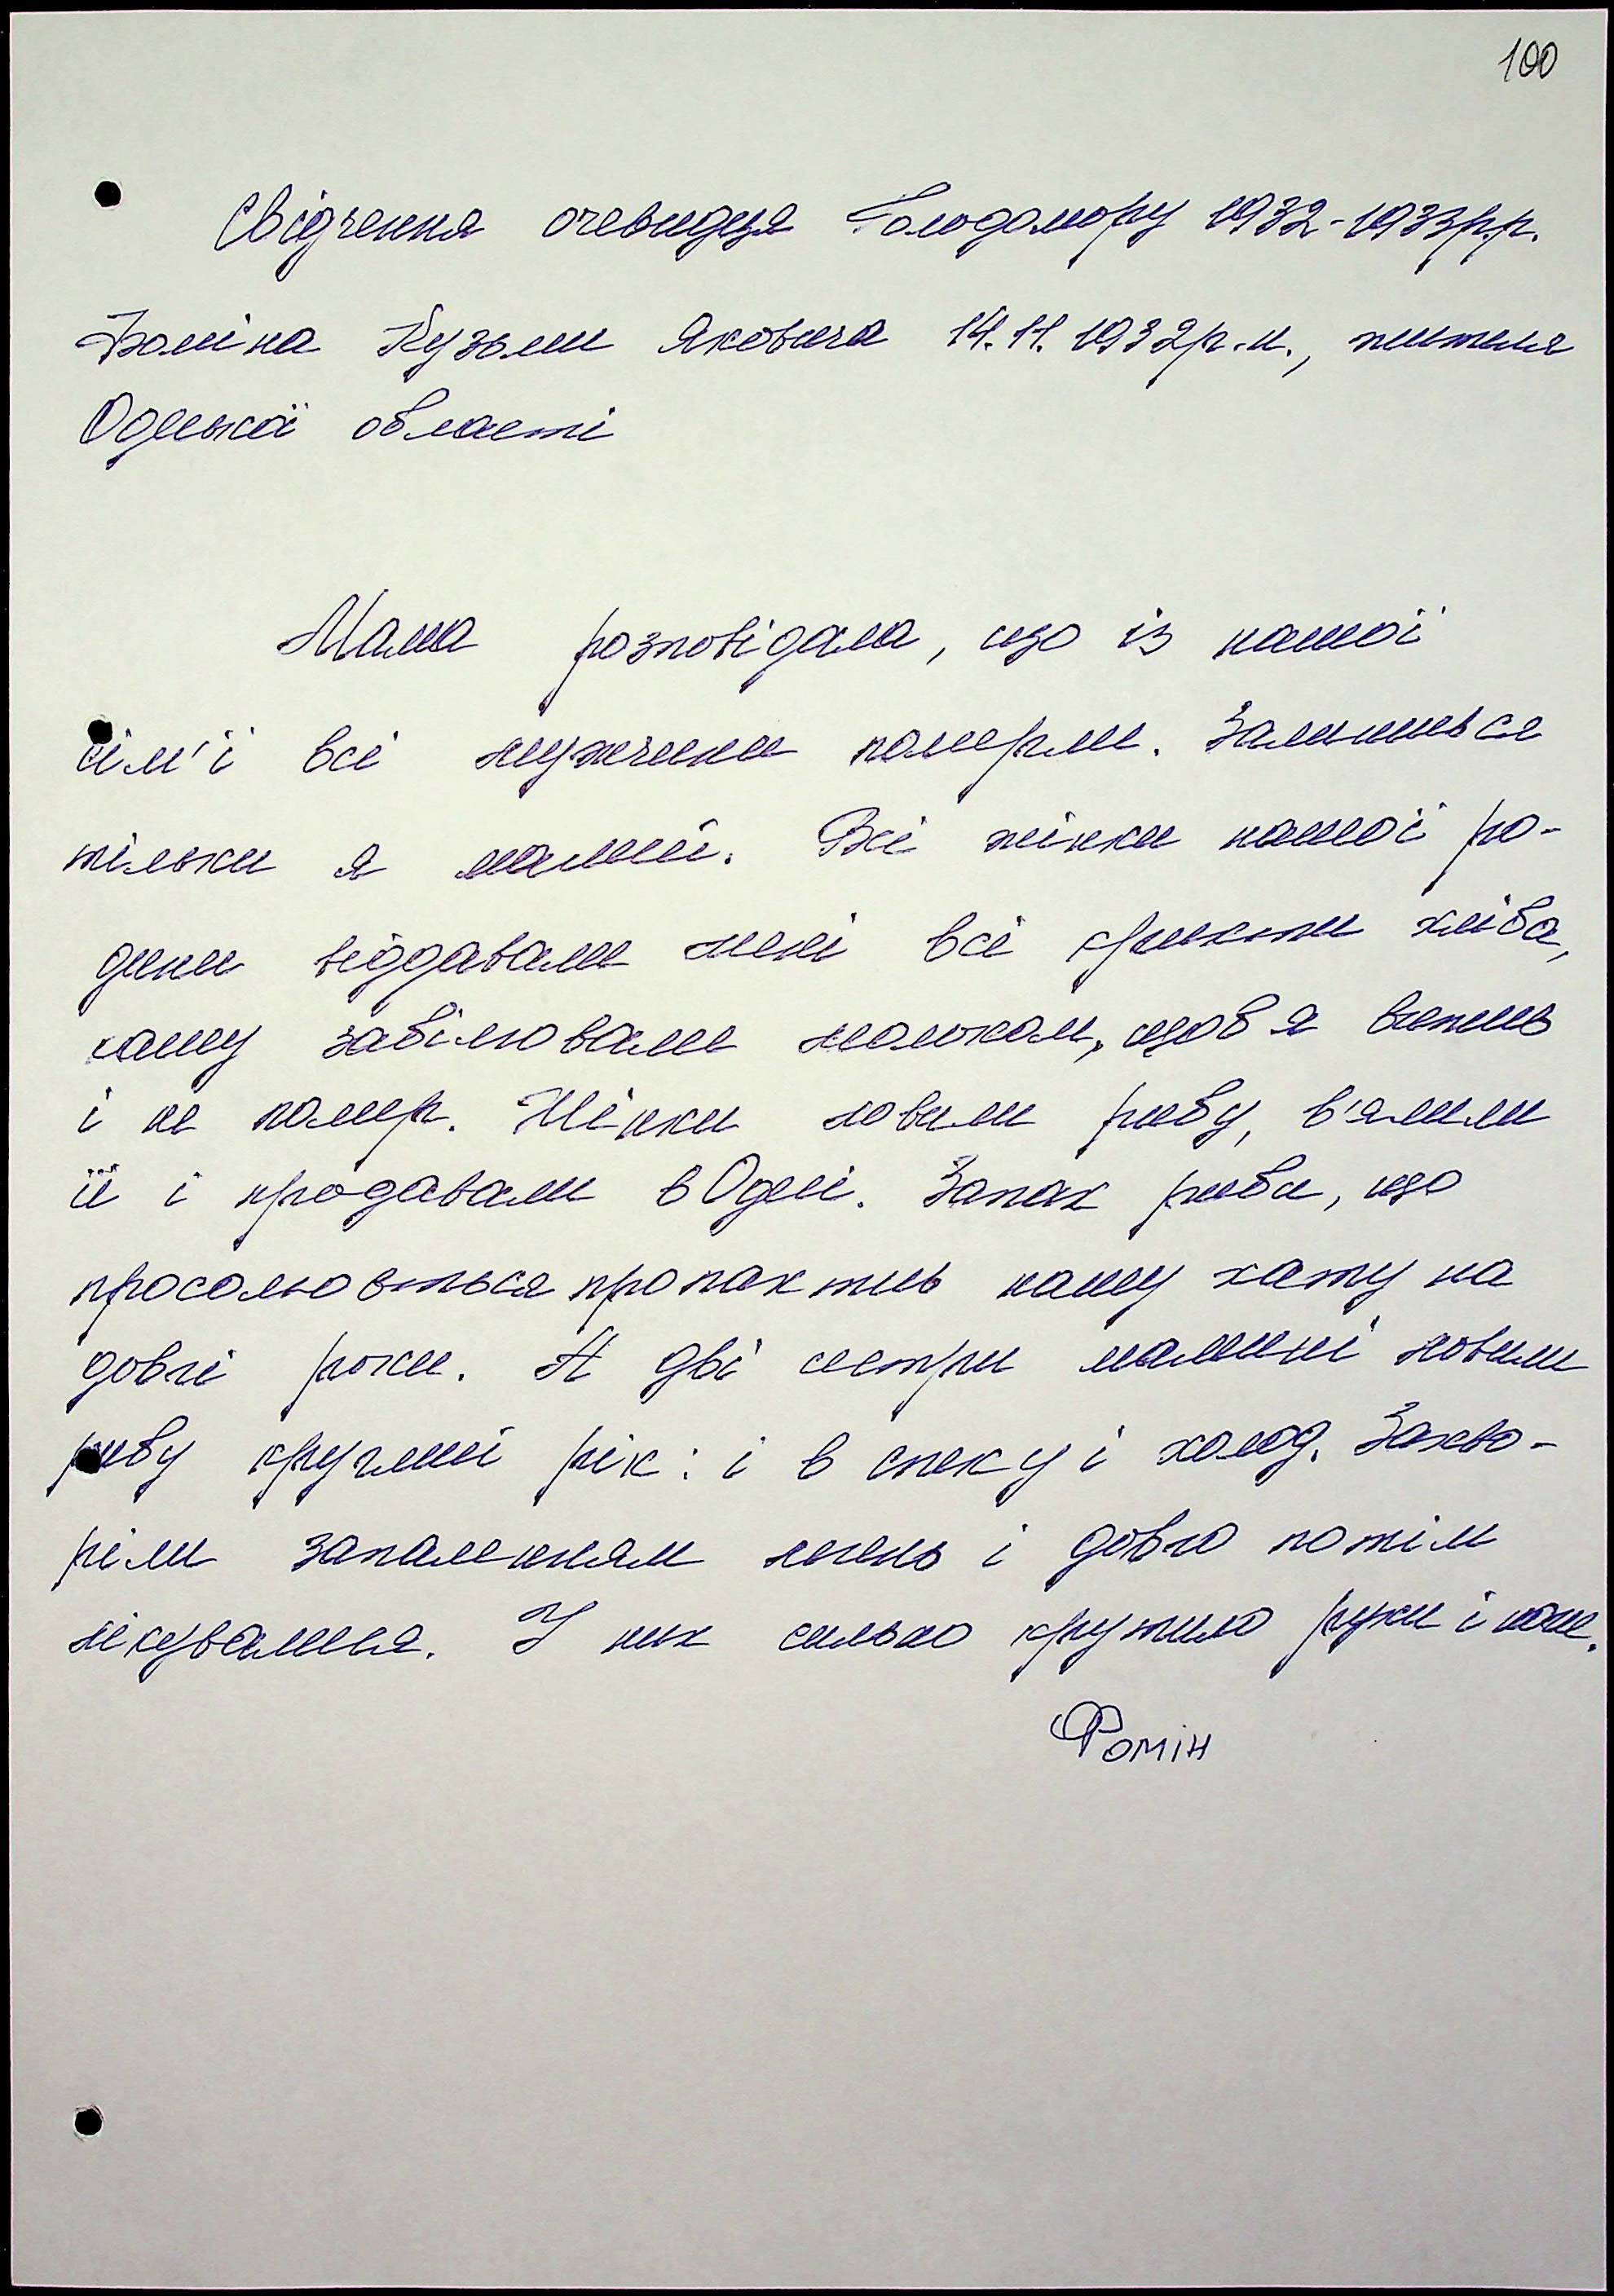 100
Свідчення очевидця Голодомору 1932-1933р.р.
Фоміна Кузьми Яковича 14.11.1932р.н., жителя
Одеської області
Мама розповідала, що із нашої
сім'ї всі мужчини померли. Залишився
тільки я малий. Всі жінки нашої ро-
дини віддавали мені всі крихти хліба,
кашу забілювали молоком, щоб я вижив
і не помер. Жінки ловили рибу, в'ялили
її і продавали в Одесі. Запах риби, що
просолювться пропахтив нашу хату на
довгі роки. А дві сестри мамині ловили
рибу круглий рік: і в спеку і холод. Захво-
ріли запаленням легень і довго потім
лікувались. У них сильно крутило руки і ноги.
Фомін